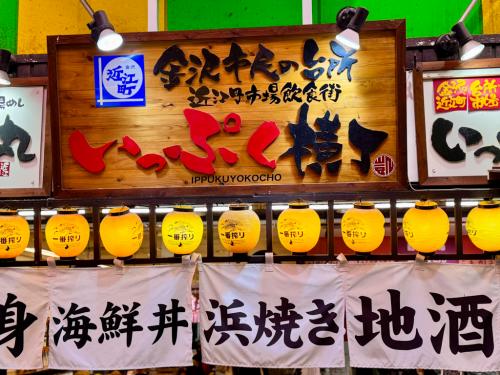 金沢
近江町
金沢市民の台所
近江町市場飲食街
いっぷく横丁
IPPUKUYOKOCHO
めし
丸
金沢 台所
近江町 市場
いっ
一番搾り 一番搾り 一番搾り 一番搾り 一番搾り 一番搾り
身 海鮮丼 浜焼き 地酒